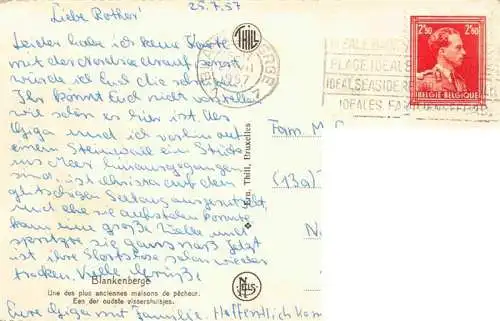 25.7.57
Liebe Rother!
Leider habe ich keine Karte
mit der Nordsee drauf sonst
würde ich Euch die schicken.
Ihr könnt Euch nicht vorstellen
wie schön es hier ist. Als
Gziga und ich vorhin auf
einem Steinwall ein Stück
ins Meer hinausgegangen
sind, ist Christa auf dem
glitschigen Seetang ausgerutscht,
und ehe sie aufstehen konnte
kam eine große Welle und
spritzte sie ganz naß. Jetzt
ist ihre Shortshose schon wieder
trocken. Viele Grüße
Eure Gziga mit Familie. Hoffentlich
Blankenberge
Une des plus anciennes maisons de pêcheur.
Een der oudste vissershuisjes.
THILL
Ern. Thill, Bruxelles
NELS
1957
PLAGE IDEALE
IDEAL SEASIDE RE
IDEALES FAM
2F50 2F50
BELGIE-BELGIQUE
Fam. M
(13a)
N